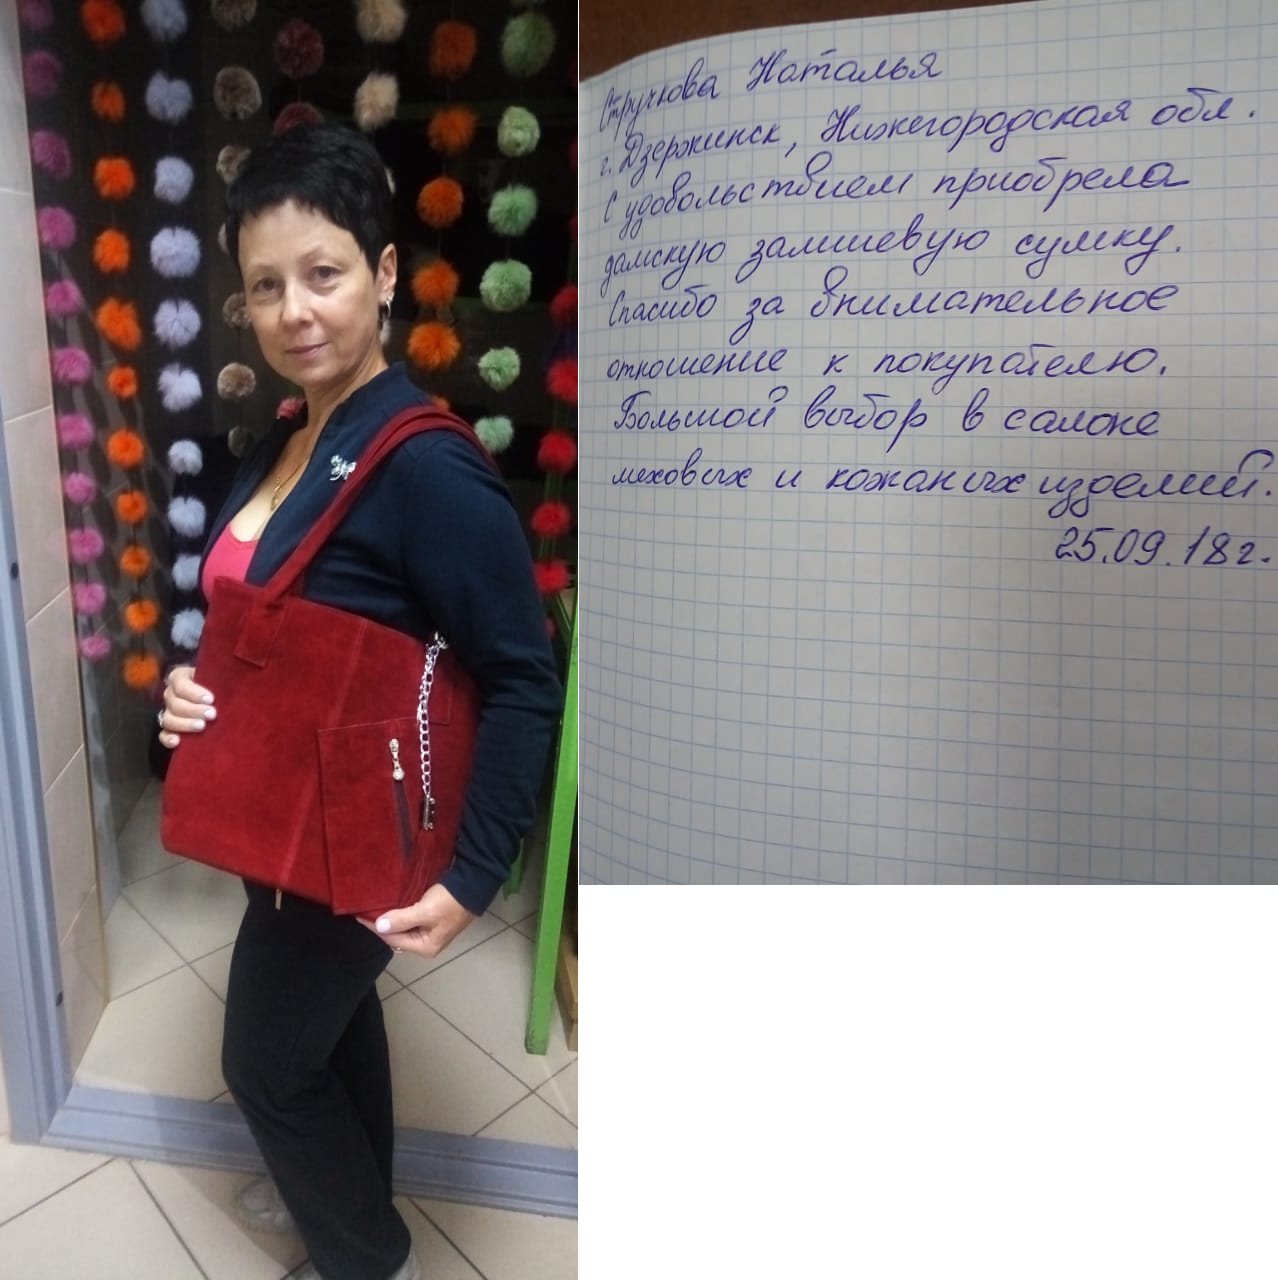 Стручкова Наталья
г. Дзержинск, Нижегородская обл.
С удовольствием приобрела
дамскую замшевую сумку.
Спасибо за внимательное
отношение к покупателю.
Большой выбор в салоне
меховых и кожаных изделий.
25.09.18г.